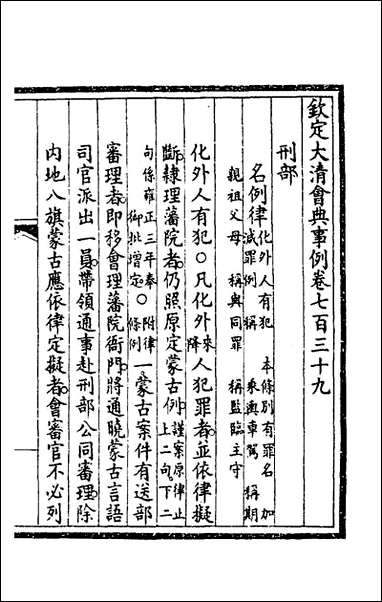 欽定大清會典事例卷七百三十九
刑部
名例律化外人有犯 本條別有罪名 加
減罪例 稱乘輿車駕 稱期
親祖父母 稱與同罪 稱監臨主守
化外人有犯○凡化外來降人犯罪者並依律擬
斷隸理藩院者仍照原定蒙古例謹案原律止上二句下二
句係雍正三年奉御批增定○附律條例一蒙古案件有送部
審理者即移會理藩院衙門將通曉蒙古言語
司官派出一員帶領通事赴刑部公同審理除
內地八旗蒙古應依律定擬者會審官不必列